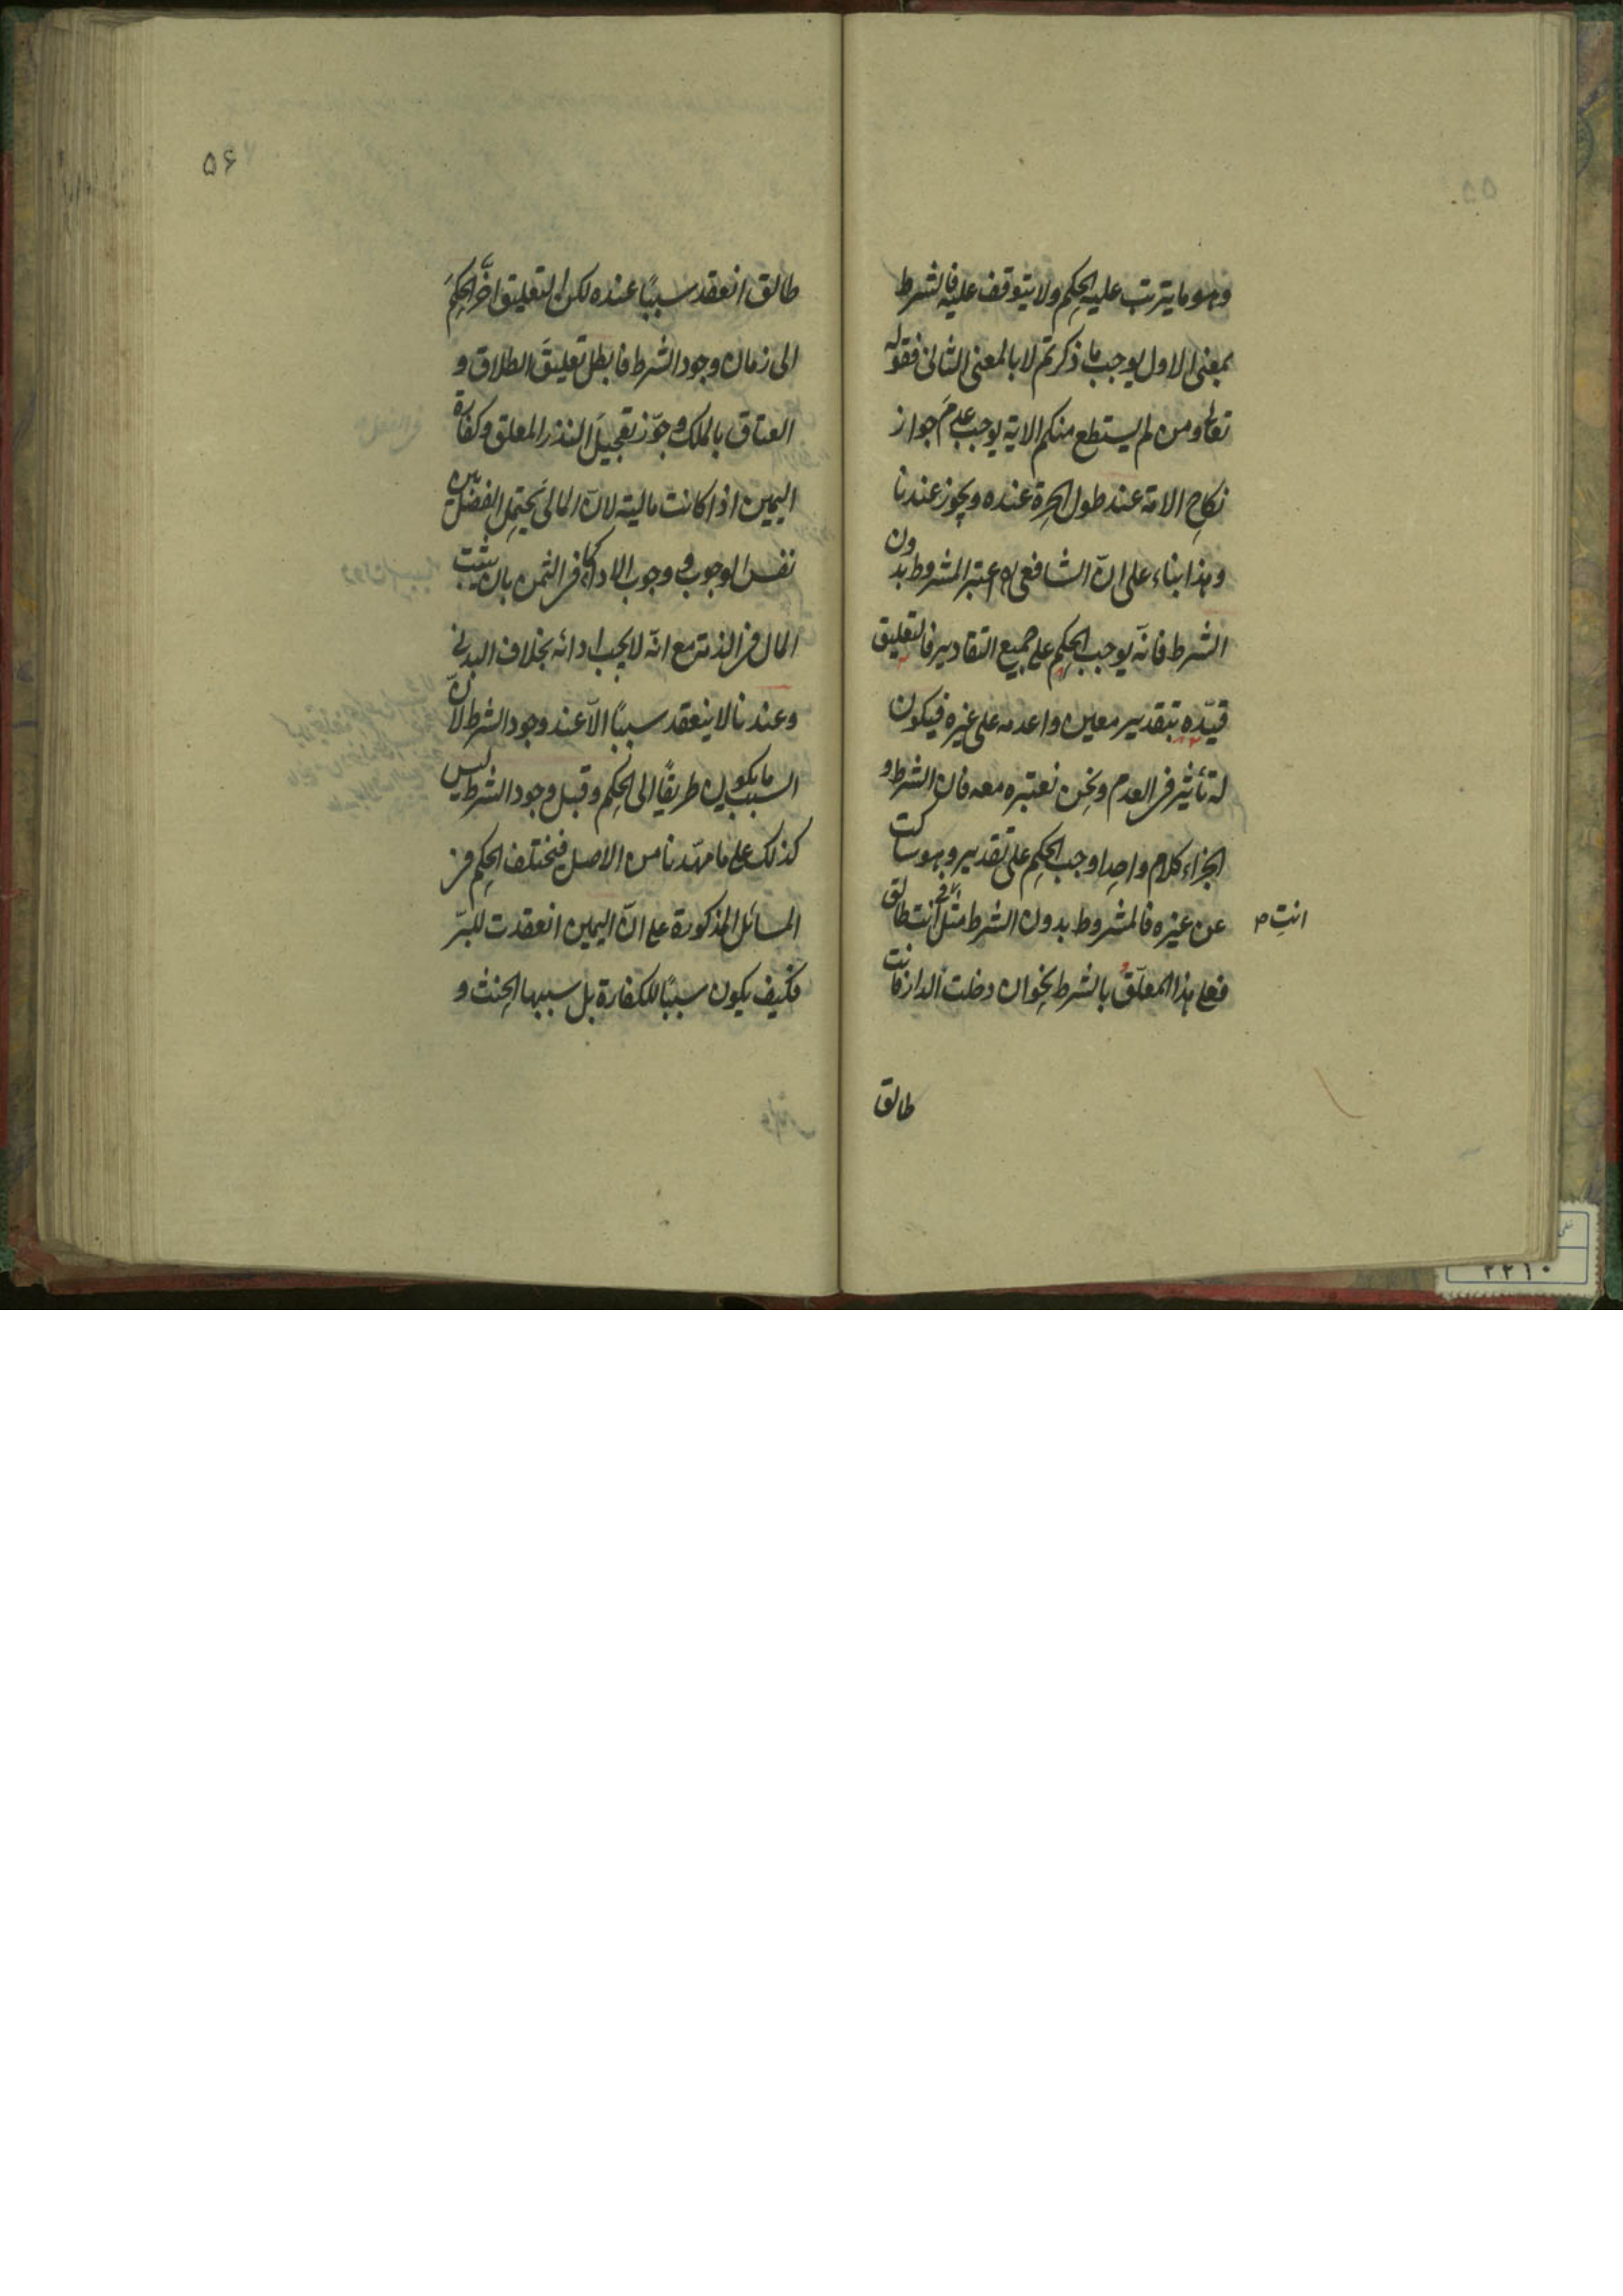 وهو ما يترتب عليه الحكم ولا يتوقف عليه فالشرط
بمعنى الاول يوجب ما ذكرتم لا بالمعنى الثانى فقوله
تعالى ومن لم يستطع منكم الاية يوجب عدمَ جواز
نكاح الامة عند طول الحرة عنده ويجوز عندنا
وهذا بناء على انّ الشافعى اعتبر المشروط بدون
الشرط فانّه يوجب الحكم على جميع التقادير فالتعليق
قيّده بتقدير معين واعدمه على غيره فيكون
له تأثير فى العدم ونحن نعتبره معه فان الشرط و
الجزاء كلام واحد اوجب الحكم على تقدير وهو ساكت
عن غيره فالمشروط بدون الشرط مثل انت طالق
انت
فعلى هذا المعلّق بالشرط نحو ان دخلت الدار فانت
طالق
۵۶
طالق انعقد سببًا عنده لكن التعليق اخّر الحكمَ
الى زمان وجود الشرط فابطل تعليقَ الطلاق و
العتاق بالملك وجوّز تعجيلَ النذر المعلق وكفارة
اليمين اذا كانت مالية لانّ المالىَ يحتمل الفصل بين
نفس الوجوب و وجوب الاداء كما فى الثمن بان يثبت
المال فى الذمة مع انّه لا يجب ادائه بخلاف البدنى
وعندنا لا ينعقد سببًا الّا عند وجود الشرط لانّ
السبب ما يكون طريقًا الى الحكم وقبل وجود الشرط ليس
كذلك على ما مهّدنا من الاصل فيختلف الحكم فى
المسائل المذكورة على انّ اليمين انعقدت للبرّ
فكيف يكون سببًا للكفارة بل سببها الحنث و
۲۲۱۰